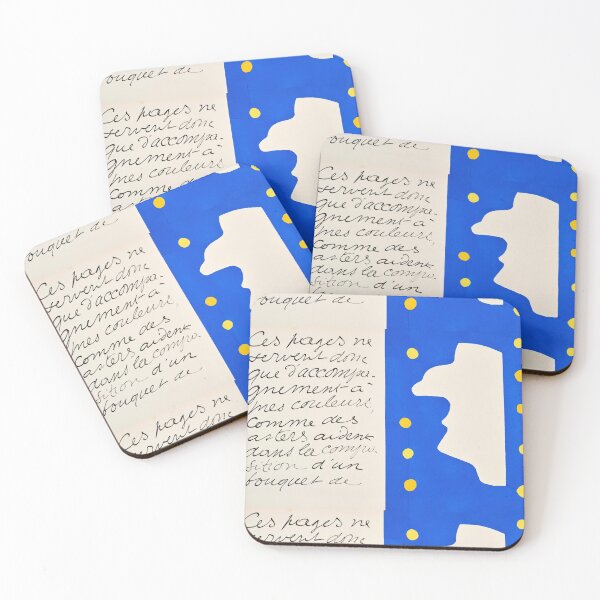 ouquet de
Ces pages ne
servent donc
que d'accompa-
gnement à
mes couleurs,
comme des
ouquet de
Ces pages ne
servent donc
que d'accompa-
gnement à
mes couleurs,
comme des
asters aident
dans la compo-
sition d'un
ouquet de
Ces pages ne
servent donc
que d'accompa-
gnement à
mes couleurs,
comme des
asters aident
dans la compo-
sition d'un
bouquet de
Ces pages ne
servent donc
ouquet de
Ces pages ne
servent donc
que d'accompa-
gnement à
mes couleurs,
comme des
asters aident
dans la compo-
sition d'un
bouquet de
Ces pages ne
servent donc